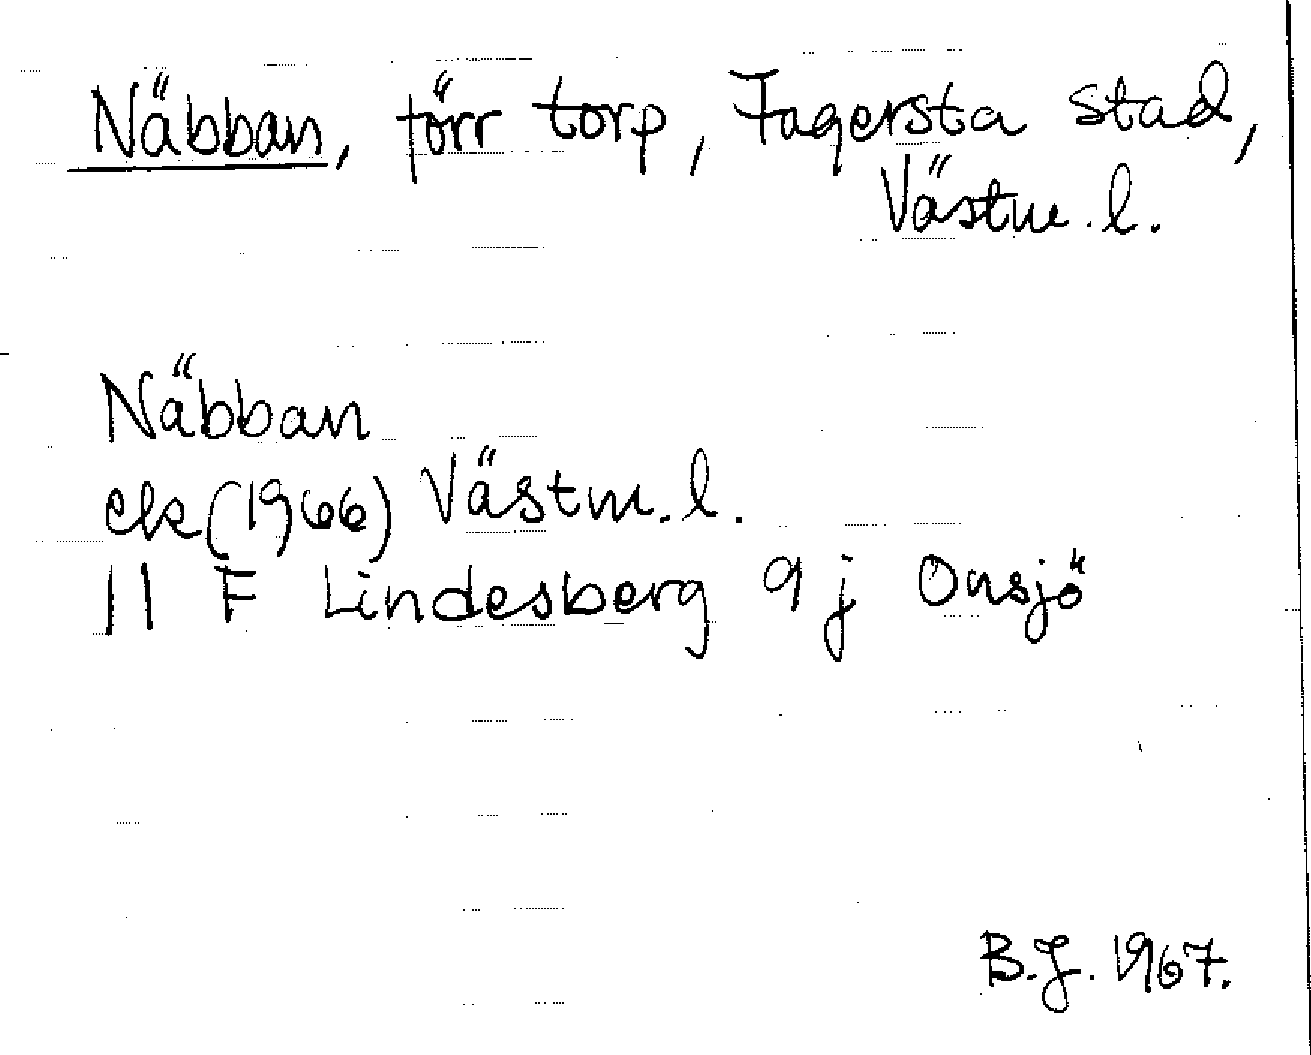 Näbban, förr torp, Fagersta stad,
Västm. l.
Näbban
ek (1966) Västm. l.
11 F Lindesberg 9 j Onsjö
B.J. 1967.